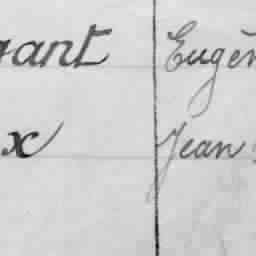 gant Eugèn
x Jean